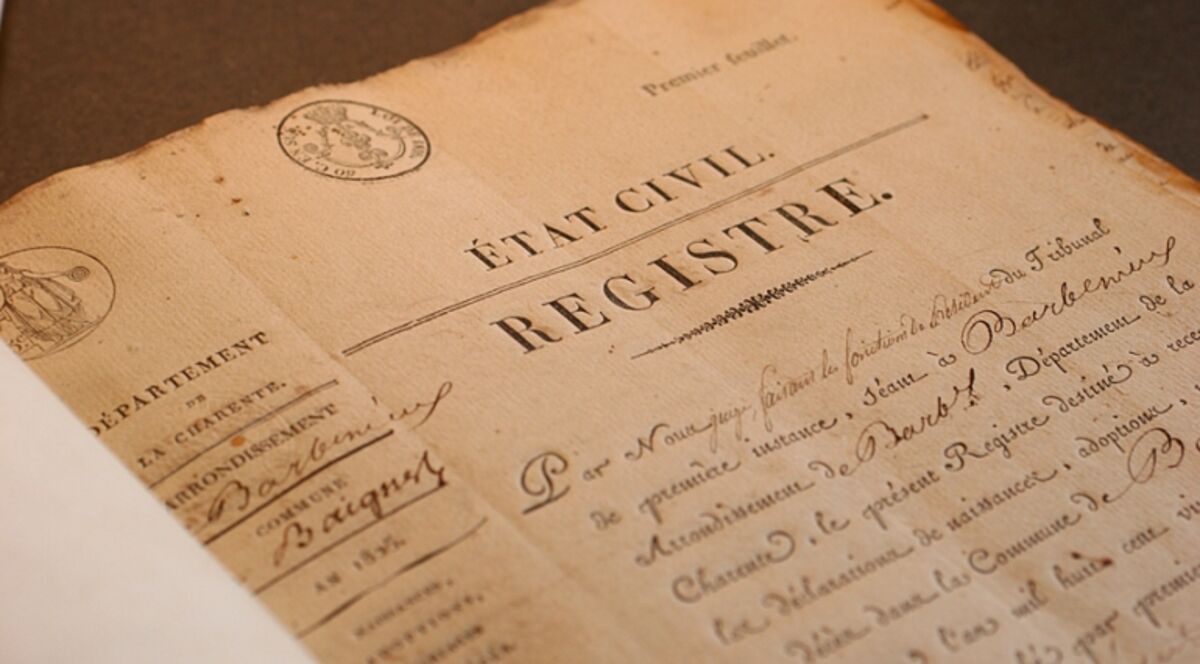 Premier feuillet.
ÉTAT CIVIL.
REGISTRE.
DÉPARTEMENT
DE
LA CHARENTE.
ARRONDISSEMENT
Barbezieux
COMMUNE
Baignes
AN 183
NAISSANCES,
Par Nous juge, faisant les fonctions de Président du Tribunal
de première instance, séant à Barbezieux
Arrondissement de Barbx, Département de la
Charente, le présent Registre destiné à
les déclarations de naissances, adoptions,
dans la Commune de
l'an mil huit cent
par premier